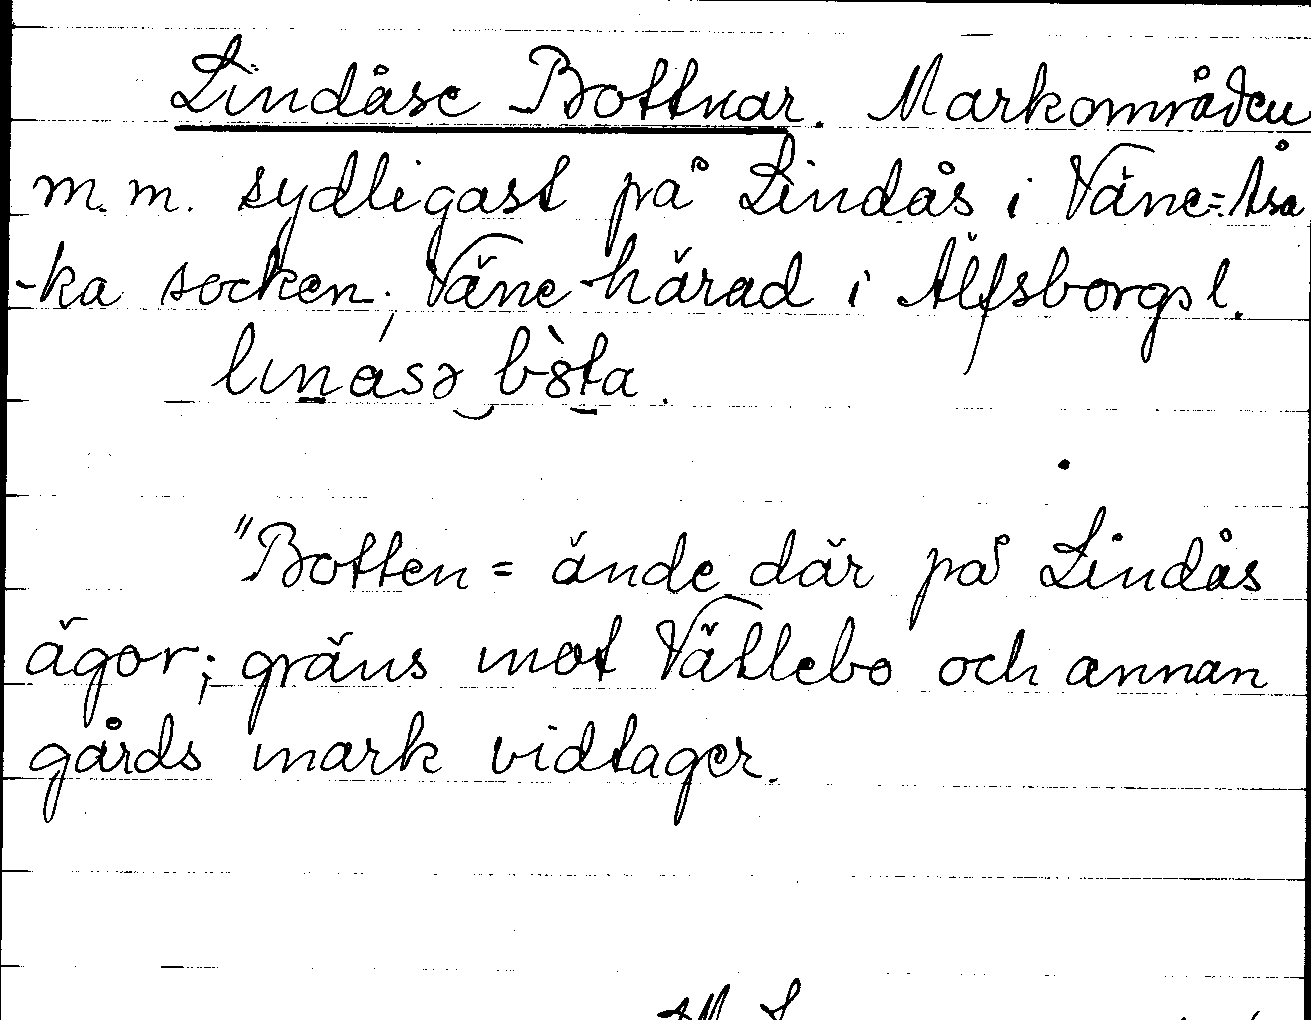 Lindåse Bottnar. Markområden
m.m. sydligast på Lindås i Väne=Åsa
-ka socken; Väne-härad i Älfsborgs l.
"Botten = ände där på Lindås
ägor; gräns mot Vättlebo och annan
gårds mark vidtager.